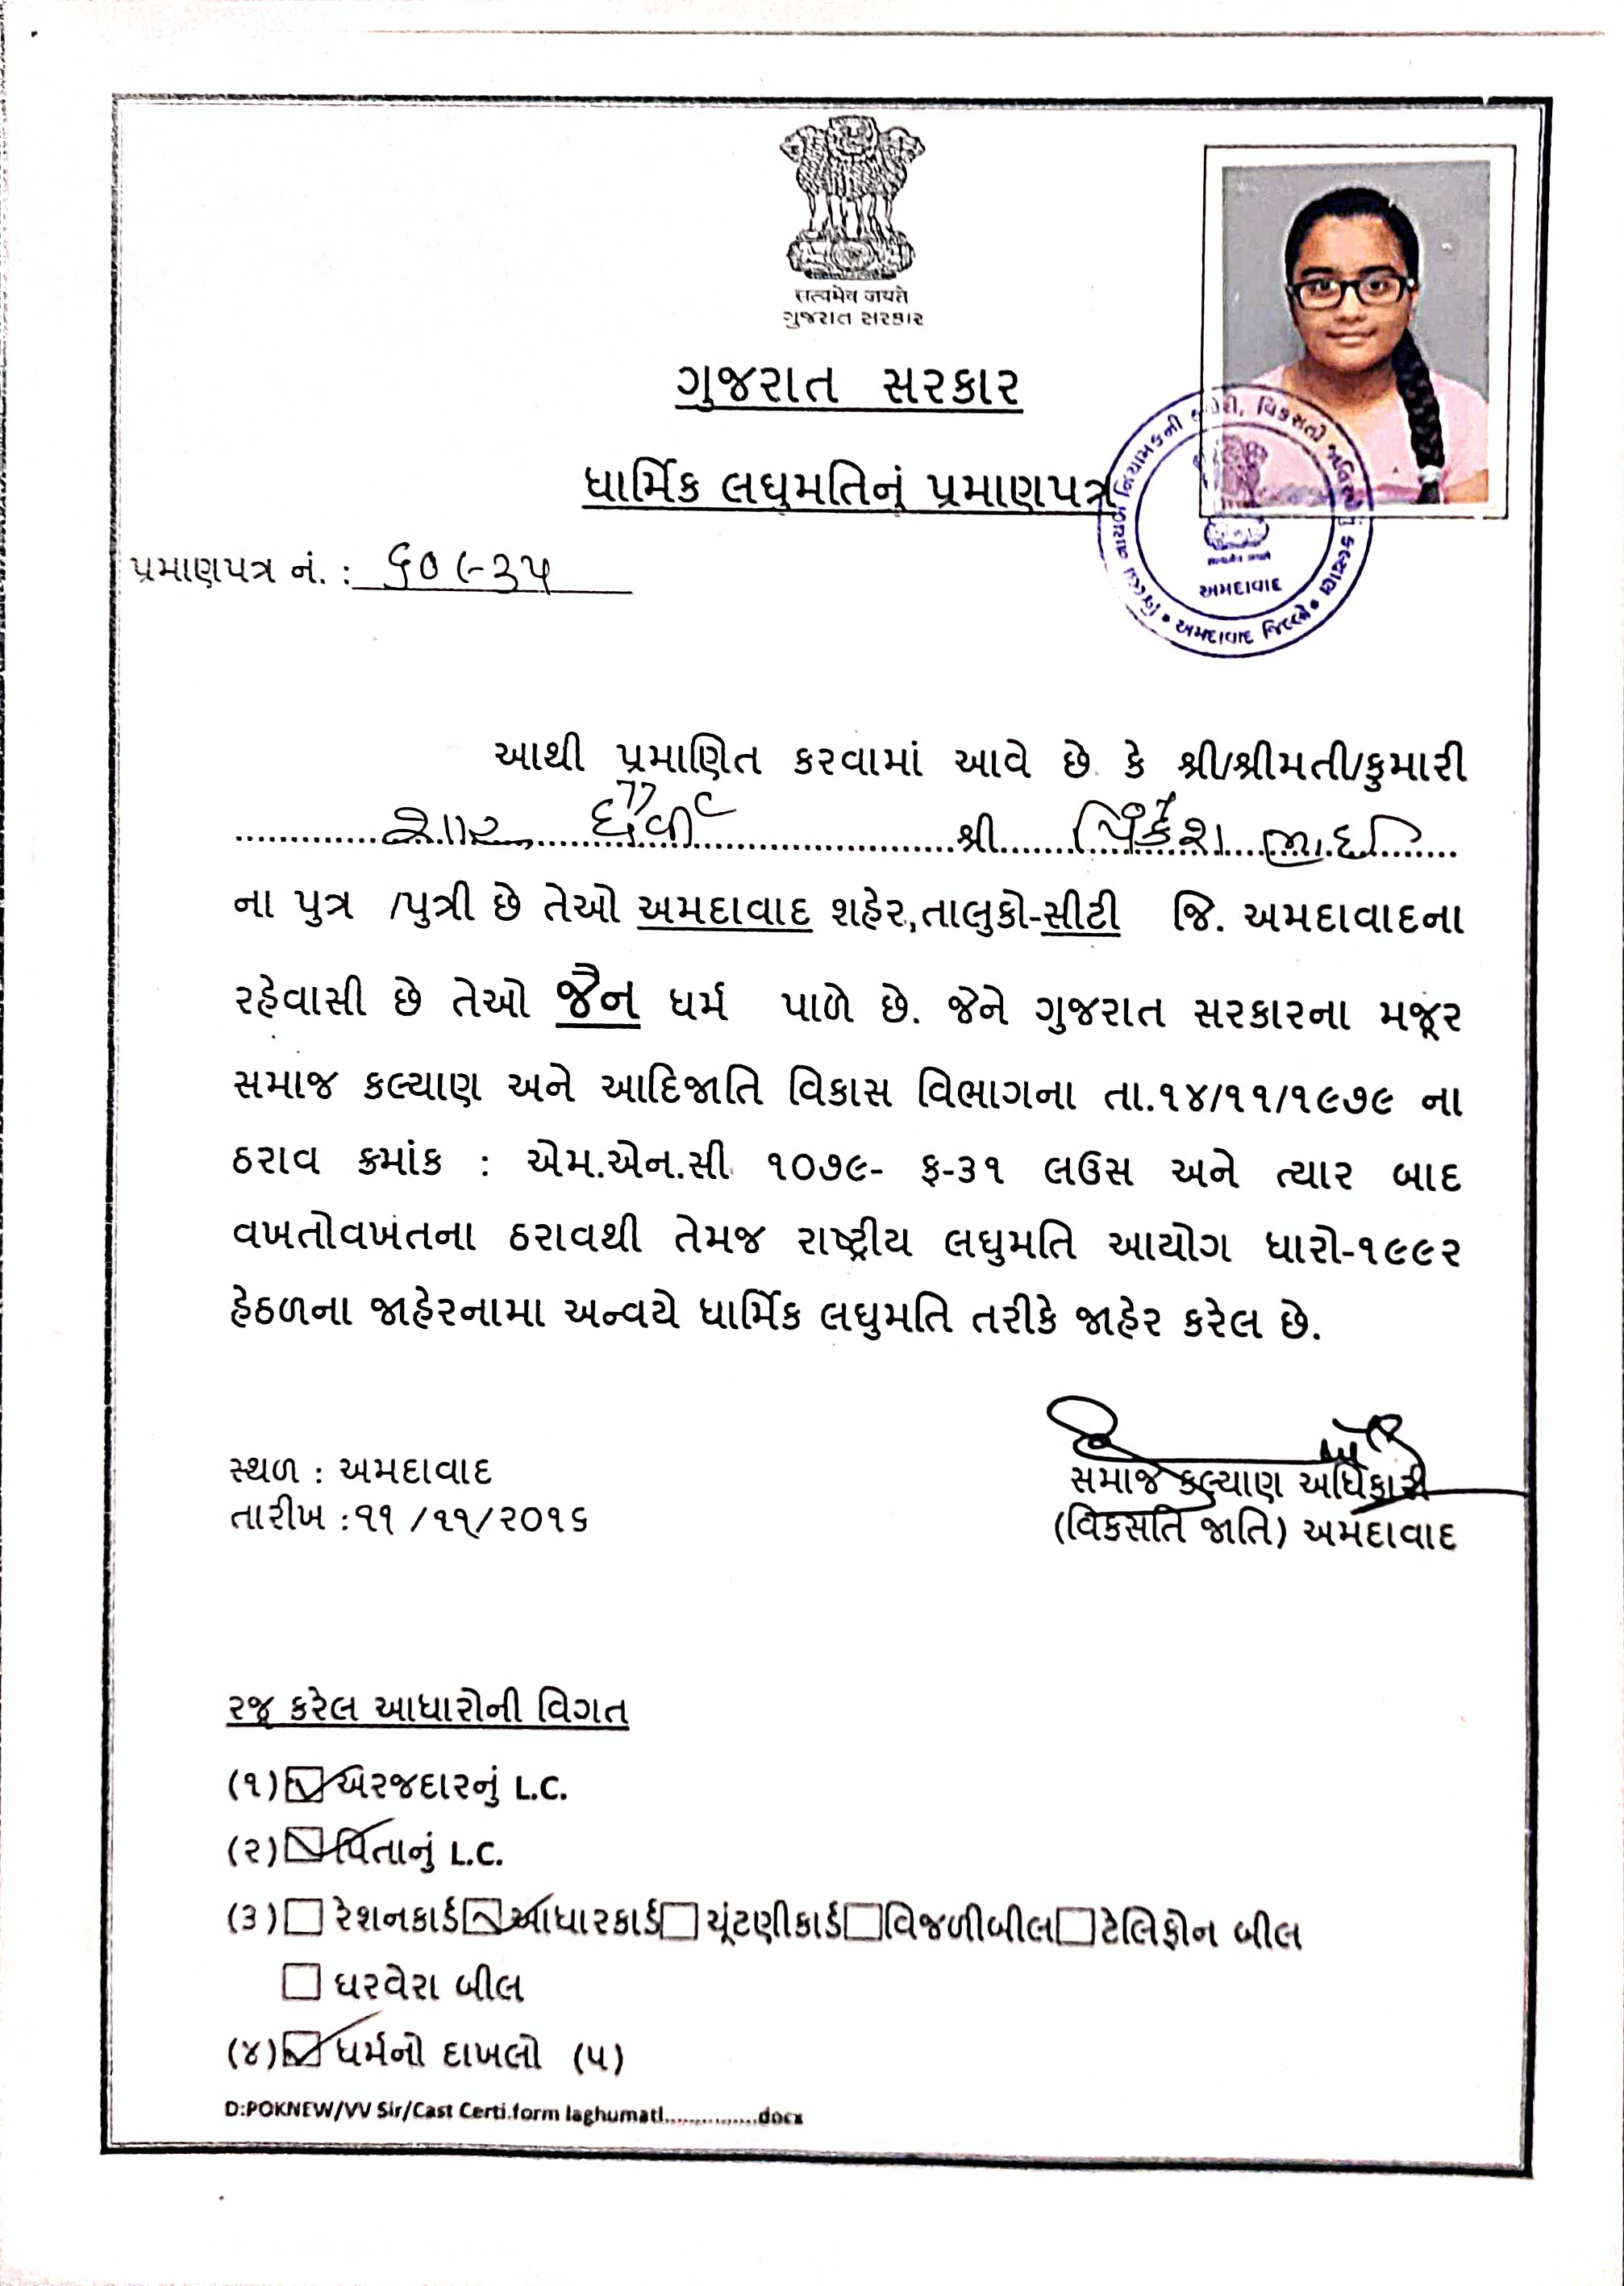 सत्यमेव जयते
ગુજરાત સરકાર
ગુજરાત સરકાર
ધાર્મિક લઘુમતિનું પ્રમાણપત્ર
પ્રમાણપત્ર નં. :
જિલ્લા નાયબ નિયામકની કચેરી, વિકસતી જાતિઓનું કલ્યાણ • અમદાવાદ જિલ્લો •
અમદાવાદ
આથી પ્રમાણિત કરવામાં આવે છે કે શ્રી/શ્રીમતી/કુમારી
શ્રી
ના પુત્ર /પુત્રી છે તેઓ અમદાવાદ શહેર,તાલુકો-સીટી જિ. અમદાવાદના
રહેવાસી છે તેઓ જૈન ધર્મ પાળે છે. જેને ગુજરાત સરકારના મજૂર
સમાજ કલ્યાણ અને આદિજાતિ વિકાસ વિભાગના તા.૧૪/૧૧/૧૯૭૯ ના
ઠરાવ ક્રમાંક : એમ.એન.સી. ૧૦૭૯- ફ-૩૧ લઉસ અને ત્યાર બાદ
વખતોવખતના ઠરાવથી તેમજ રાષ્ટ્રીય લઘુમતિ આયોગ ધારો-૧૯૯૨
હેઠળના જાહેરનામા અન્વયે ધાર્મિક લઘુમતિ તરીકે જાહેર કરેલ છે.
સ્થળ : અમદાવાદ
તારીખ :૧૧ /૧૧/૨૦૧૬
સમાજ કલ્યાણ અધિકારી
(વિકસતિ જાતિ) અમદાવાદ
રજૂ કરેલ આધારોની વિગત
(૧) અરજદારનું L.C.
(૨) પિતાનું L.C.
(૩) રેશનકાર્ડ આધારકાર્ડ ચૂંટણીકાર્ડ વિજળીબીલ ટેલિફોન બીલ
ઘરવેરા બીલ
(૪) ધર્મનો દાખલો (૫)
D:POKNEW/VV Sir/Cast Certi.form laghumati...............docx